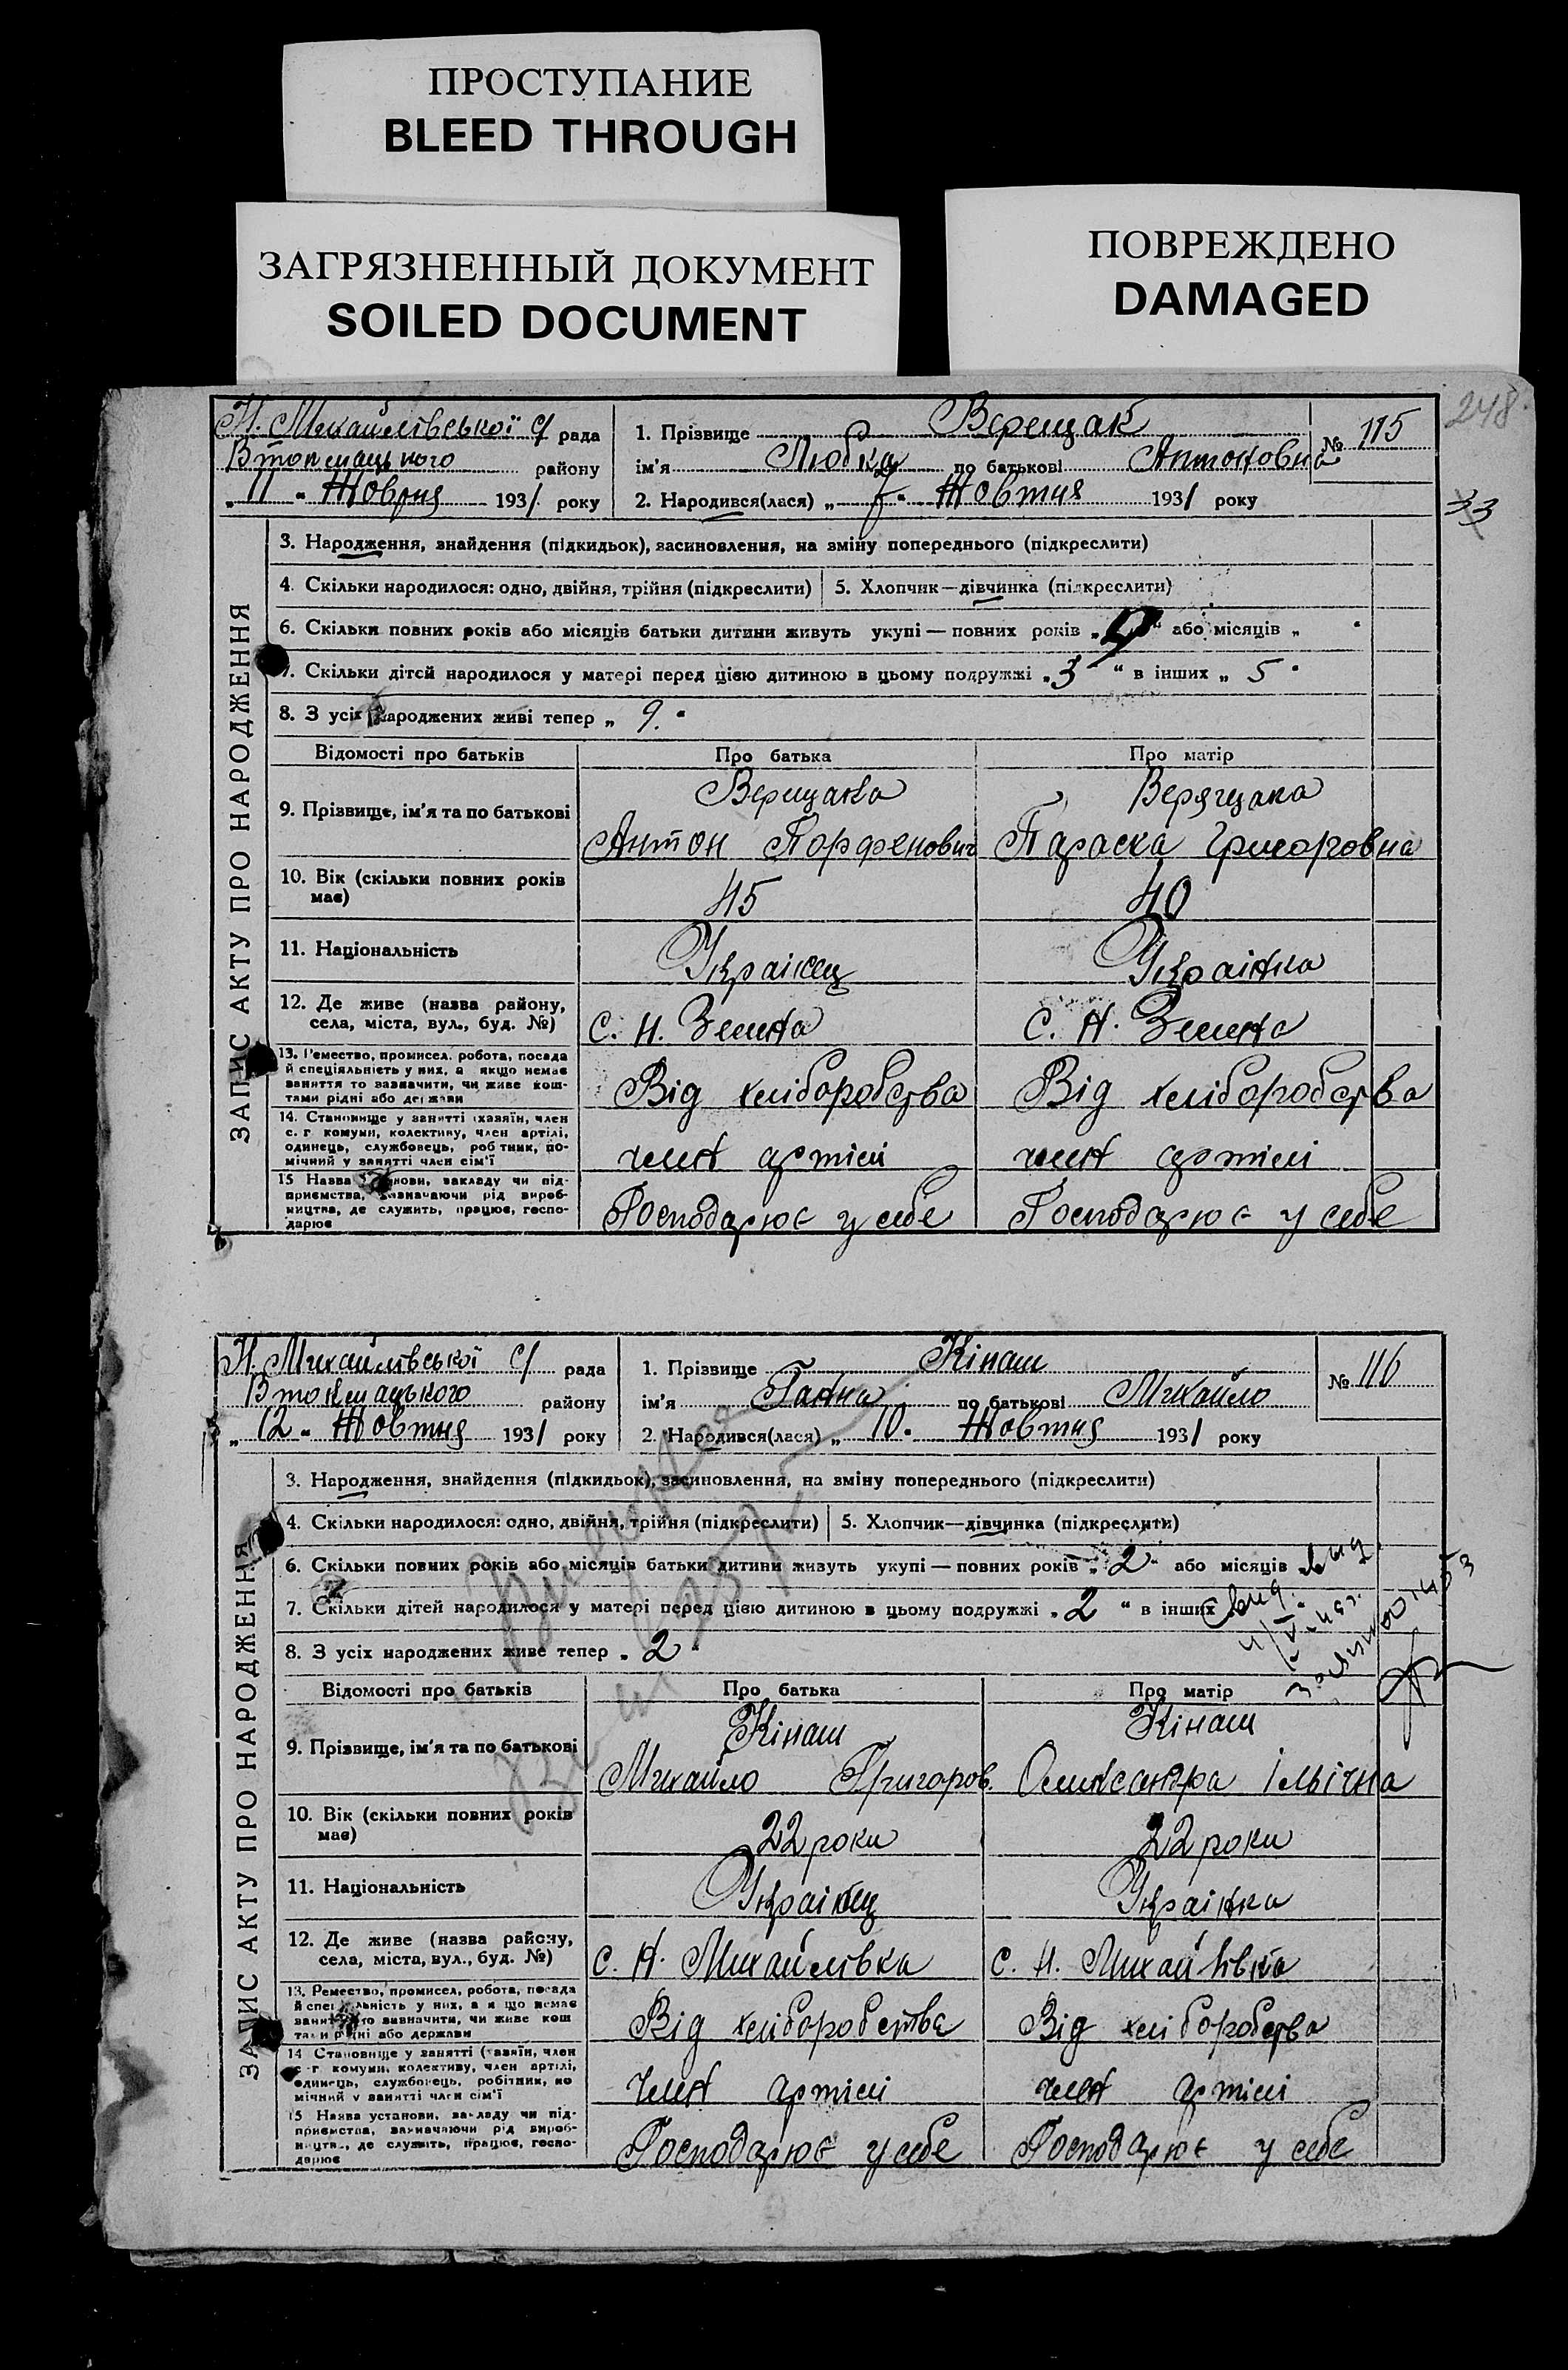 ПРОСТУПАНИЕ
BLEED THROUGH
ЗАГРЯЗНЕННЫЙ ДОКУМЕНТ
SOILED DOCUMENT
ПОВРЕЖДЕНО
DAMAGED
248
33
ЗАПИС АКТУ ПРО НАРОДЖЕННЯ
Н. Михайлівської с/ рада
Втокмацького району
„ 11 " Жовтня 1931 року
1. Прізвище Верещак
№ 115
ім'я Любка по батькові Антоновна
2. Народився(лася) „ 7 " Жовтня 1931 року
3. Народження, знайдення (підкидьок), засиновлення, на зміну попереднього (підкреслити)
4. Скільки народилося: одно, двійня, трійня (підкреслити) 5. Хлопчик—дівчинка (підкреслити)
6. Скільки повних років або місяців батьки дитини живуть укупі — повних років „ 9 " або місяців „ "
7. Скільки дітей народилося у матері перед цією дитиною в цьому подружжі „ 3 " в інших „ 5 "
8. З усіх народжених живі тепер „ 9. "
Відомості про батьків Про батька Про матір
9. Прізвище, ім'я та по батькові
Верещака Верящака
Антон Порфенович Параска Григоровна
10. Вік (скільки повних років має) 45 40
11. Національність Українец Українка
12. Де живе (назва району, села, міста, вул., буд. №) С. Н. Зелена С. Н. Зелена
13. Ремество, промисел, робота, посада
й спеціяльність у них, а якщо немає
заняття то зазначити, чи живе кош-
тами рідні або держави
Від хліборобства Від хліборобства
14. Становище у занятті (хазяїн, член
с.-г. комуни, колективу, член артілі,
одинець, службовець, робітник, по-
мічний у занятті член сім'ї
член артілі член артілі
15 Назва установи, закладу чи під-
приємства, зазначаючи рід вироб-
ництва, де служить, працює, госпо-
дарює
Господарює у себе Господарює у себе
ЗАПИС АКТУ ПРО НАРОДЖЕННЯ
Н. Михайлівської с/ рада
Втокмацького району
„ 12 " Жовтня 1931 року
1. Прізвище Кінаш
№ 116
ім'я Ганна по батькові Михайло
2. Народився(лася) „ 10 " Жовтня 1931 року
3. Народження, знайдення (підкидьок), засиновлення, на зміну попереднього (підкреслити)
4. Скільки народилося: одно, двійня, трійня (підкреслити) 5. Хлопчик—дівчинка (підкреслити)
6. Скільки повних років або місяців батьки дитини живуть укупі — повних років „ 2 " або місяців
7. Скільки дітей народилося у матері перед цією дитиною в цьому подружжі „ 2 " в інших
8. З усіх народжених живе тепер „ 2 "
Відомості про батьків Про батька Про матір
9. Прізвище, ім'я та по батькові
Кінаш Кінаш
Михайло Григоров. Олександра Ільічна
10. Вік (скільки повних років має) 22 роки 22 роки
11. Національність Українец Українка
12. Де живе (назва району, села, міста, вул., буд. №) С. Н. Михайлівка С. Н. Михайлівка
13. Ремество, промисел, робота, посада
й спеціяльність у них, а якщо немає
заняття то визначити, чи живе кош
тами рідні або держави
Від хліборобства Від хліборобства
14 Становище у занятті (хазяїн, член
с-г комуни, колективу, член артілі,
одинець, службовець, робітник, по
мічний у занятті член сім'ї
член артілі член артілі
15 Назва установи, закладу чи під-
приємства, зазначаючи рід вироб-
ництва, де служить, працює, госпо-
дарює
Господарює у себе Господарює у себе